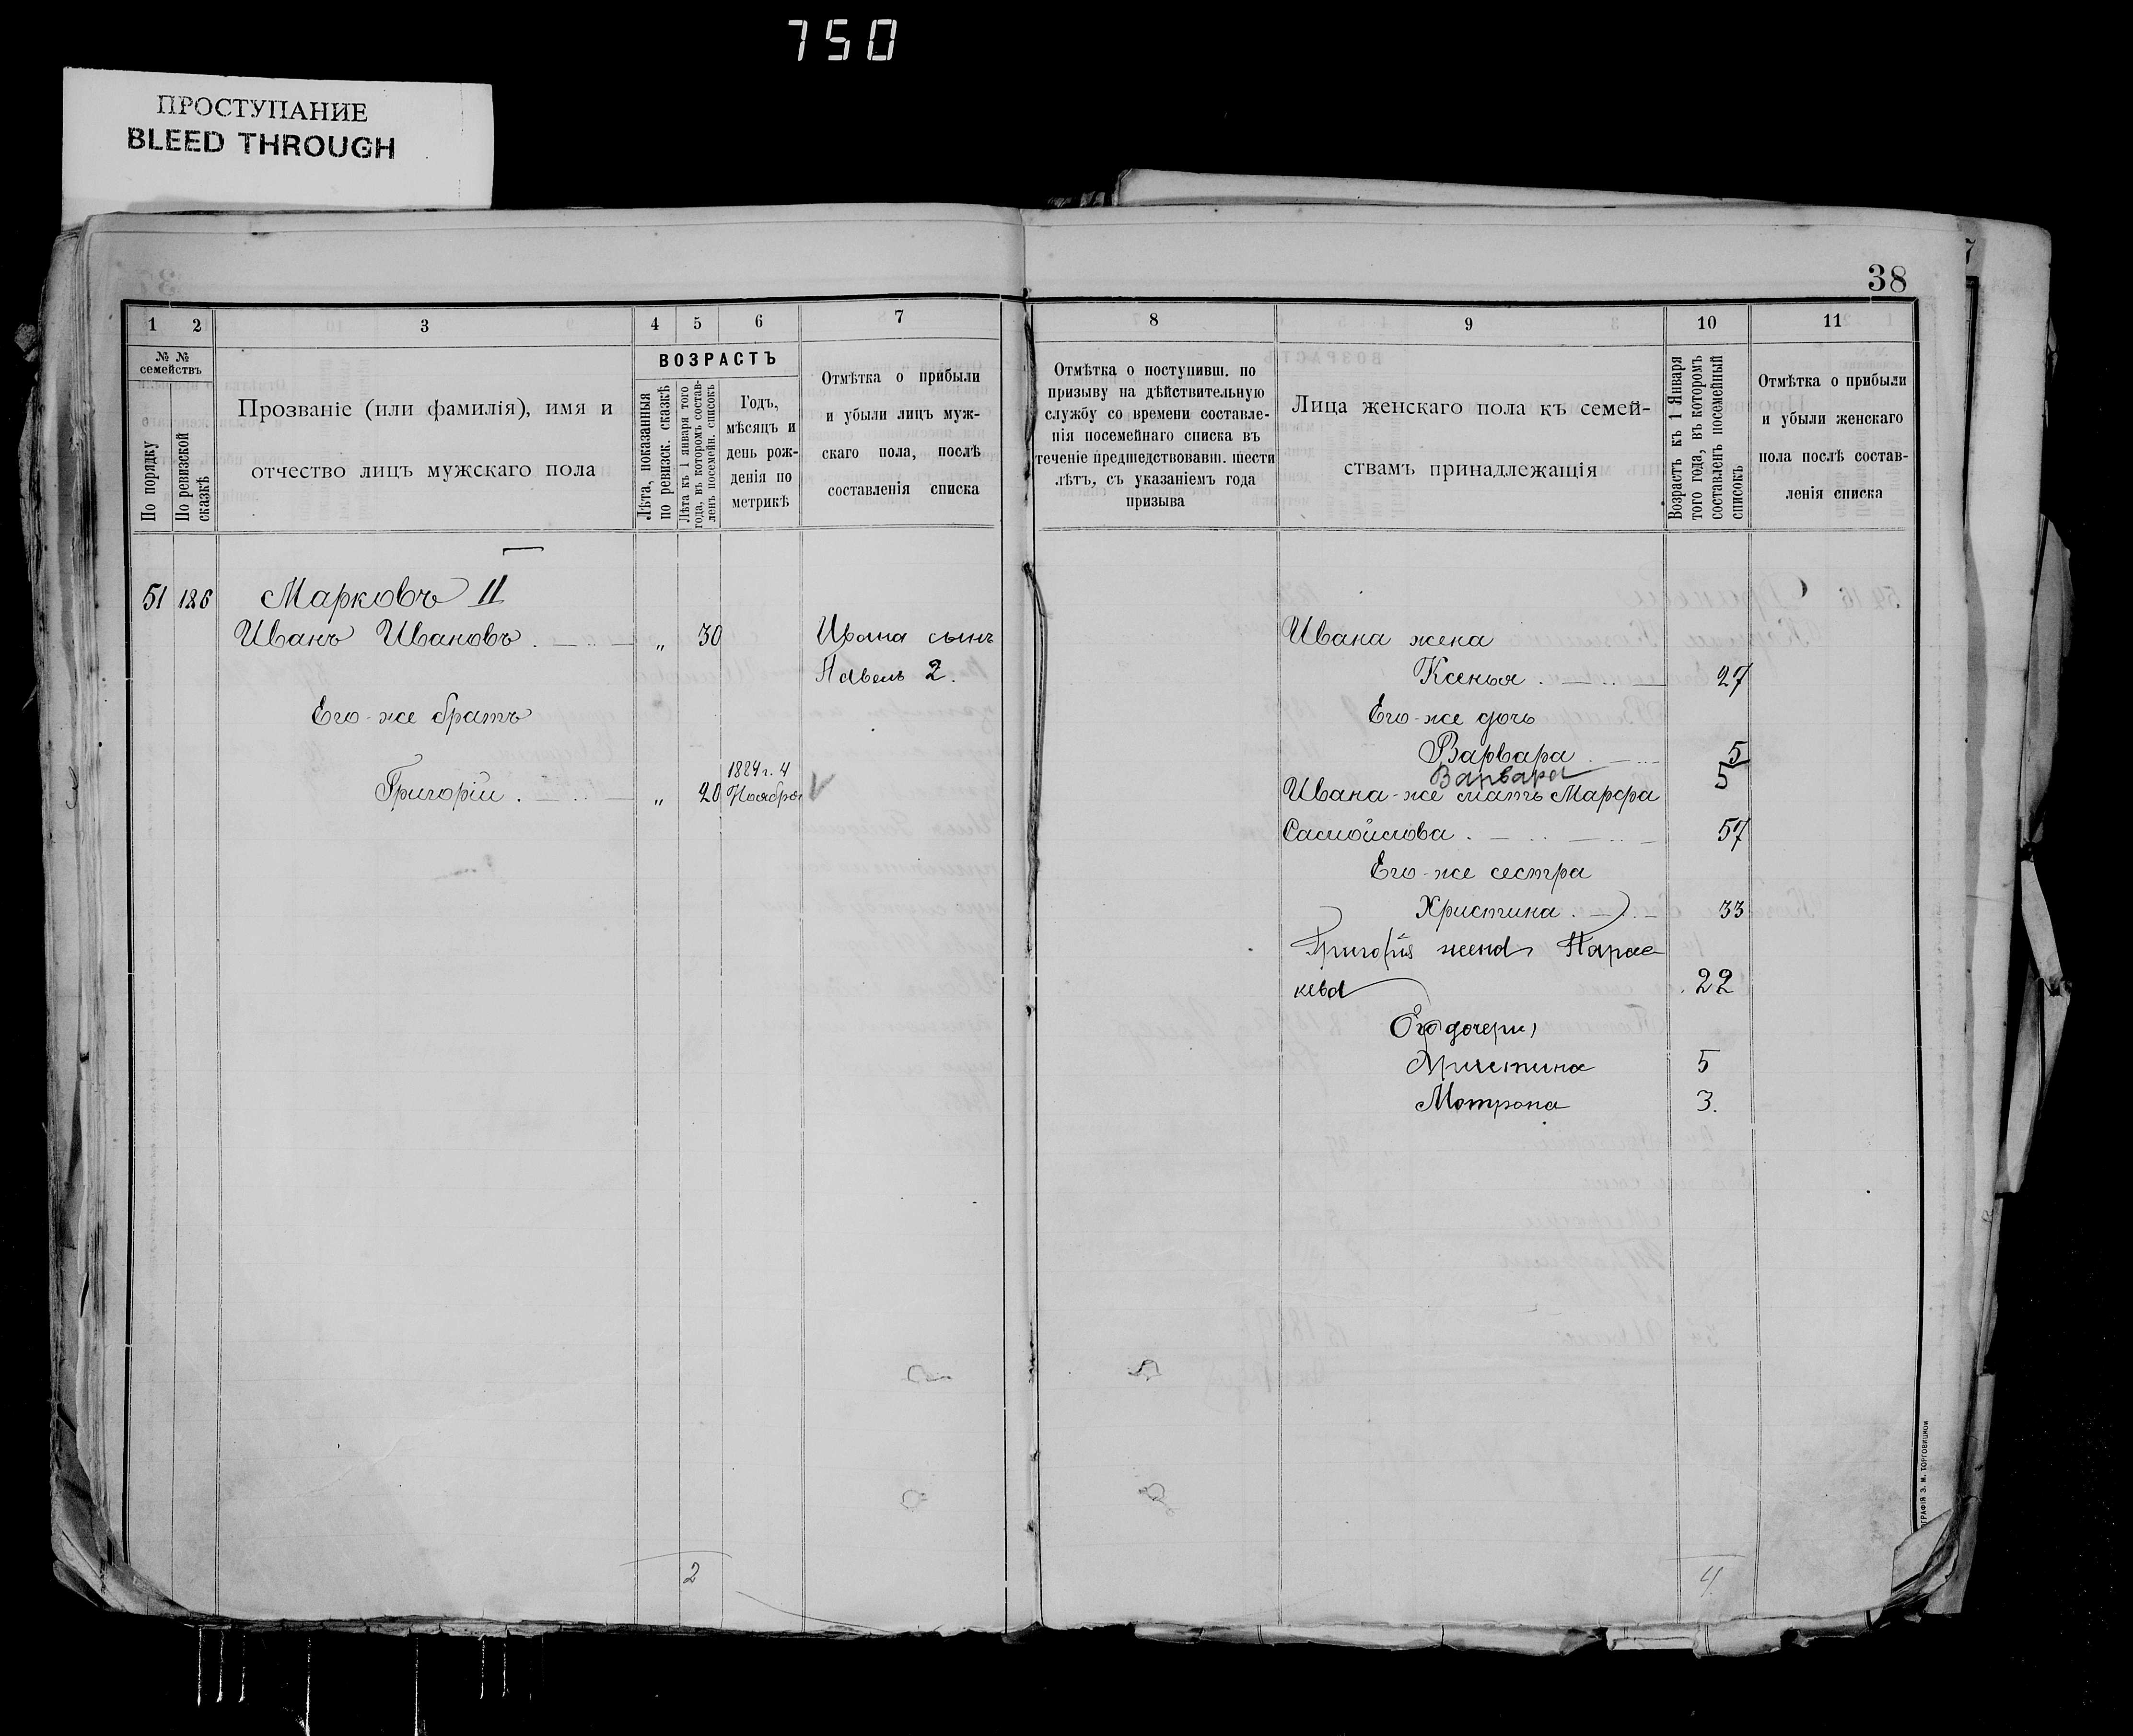 750
ПРОСТУПАНИЕ
BLEED THROUGH
38
1 2 3 4 5 6 7
№ № семействъ
По порядку
По ревизской сказкѣ
Прозваніе (или фамилія), имя и
отчество лицъ мужскаго пола
ВОЗРАСТЪ
Лѣта, показанныя
по ревизск. сказкѣ
Лѣта къ 1 января того
года, въ которомъ состав-
ленъ посемейн. списокъ
Годъ,
мѣсяцъ и
день рож-
денія по
метрикѣ
Отмѣтка о прибыли
и убыли лицъ муж-
скаго пола, послѣ
составленія списка
51 126 Марковъ II
Иванъ Ивановъ . „ 30 Ивана сынъ
Павелъ 2.
Его-же братъ
1884 г. 4
Григорій . „ 20 Ноября
2
8 9 10 11
Отмѣтка о поступивш. по
призыву на дѣйствительную
службу со времени составле-
нія посемейнаго списка въ
теченіе предшедствовавш. шести
лѣтъ, съ указаніемъ года
призыва
Лица женскаго пола къ семей-
ствамъ принадлежащія
Возрастъ къ 1 Января
того года, въ которомъ
составленъ посемейный
списокъ
Отмѣтка о прибыли
и убыли женскаго
пола послѣ состав-
ленія списка
Ивана жена
Ксенья . 27
Его-же дочь
Варвара 5
Варвара 5
Ивана-же мать Марфа
Самойлова . 57
Его-же сестра
Христина . 33
Григорія жена Парас
кева 22
Его дочери
Христина 5
Мотрона 3.
4
ОГРАФІЯ З. М. ТОРГОВИЦКОЙ